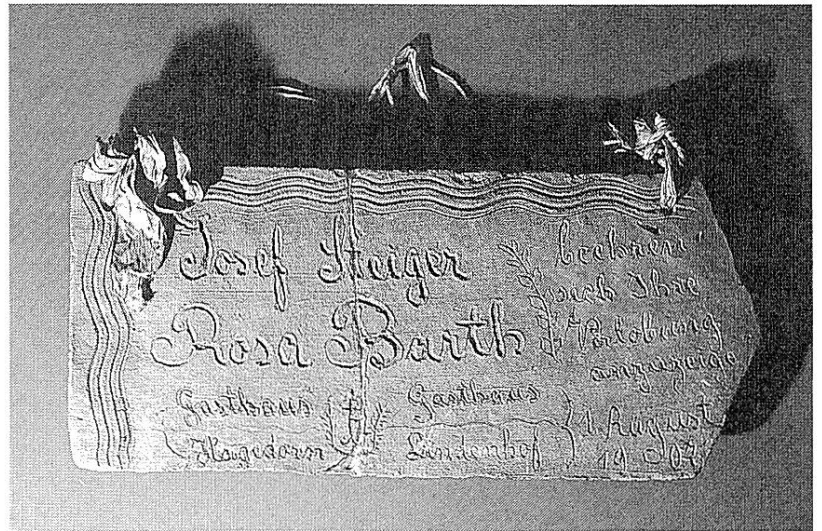 Josef Steiger
Rosa Barth
Gasthaus
Hagedorn
Gasthaus
Lindenhof
beehren
sich Ihre
Verlobung
anzuzeige
1. August
1907